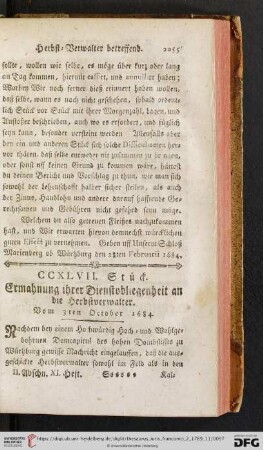 Herbst-Verwalter betreffend. 2055
sollte, wollen wir selbe, es möge über kurz oder lang
an Tag kommen, hiemit cassirt, und annullirt haben;
Wurdet Wir noch ferner dieß erinnert haben wollen,
daß selbe, wann es noch nicht geschehen, sobald ordent-
lich Stück vor Stück mit ihrer Morgenzahl, Lagen, und
Anstößer beschrieben, auch wo es erfordert, und füglich
seyn kann, besonder versteint werden. Allenfalls aber
den ein und anderen Stück sich solche Difficultäten hervor
thäten, daß selbe entweder nicht zusammen zu
oder sonst kein Grund zu kommen wäre, hättest
du deinen Bericht und Vorschlag zu thun, wie man sich
sowohl der Lehenschaft halber sicher stellen, als auch
der Zinse, Handlohn und andere darauf haftende Ge-
rechtsamen und Gebühren nicht gefährt seyn möge.
Welchem du also getreuen Fleißes nachzukommen
hast, und Wir erwarten hievon demnächst würcklichen
guten Effect zu vernehmen. Geben uff Unserm Schloß
Marienberg ob Würtzburg den 21ten Februarii 1684.
CCXLVII. Stück.
Ermahnung ihrer Dienstobliegenheit an
die Herbstverwalter.
Vom 3ten October 1684.
Nachdem bey einem Hochwürdig Hoch, und Wohlge-
bohrenen Domcapitul des hohen Domstiffts zu
Würtzburg gewisse Nachricht eingelauffen, daß die aus-
geschickte Herbstverwalter sowohl im Geld als in den
II. Abschn. XI. Heft. Ssssss Kal-
http://digi.ub.uni-heidelberg.de/diglit/thesaurus_iuris_franconici_2_1789_11/0097